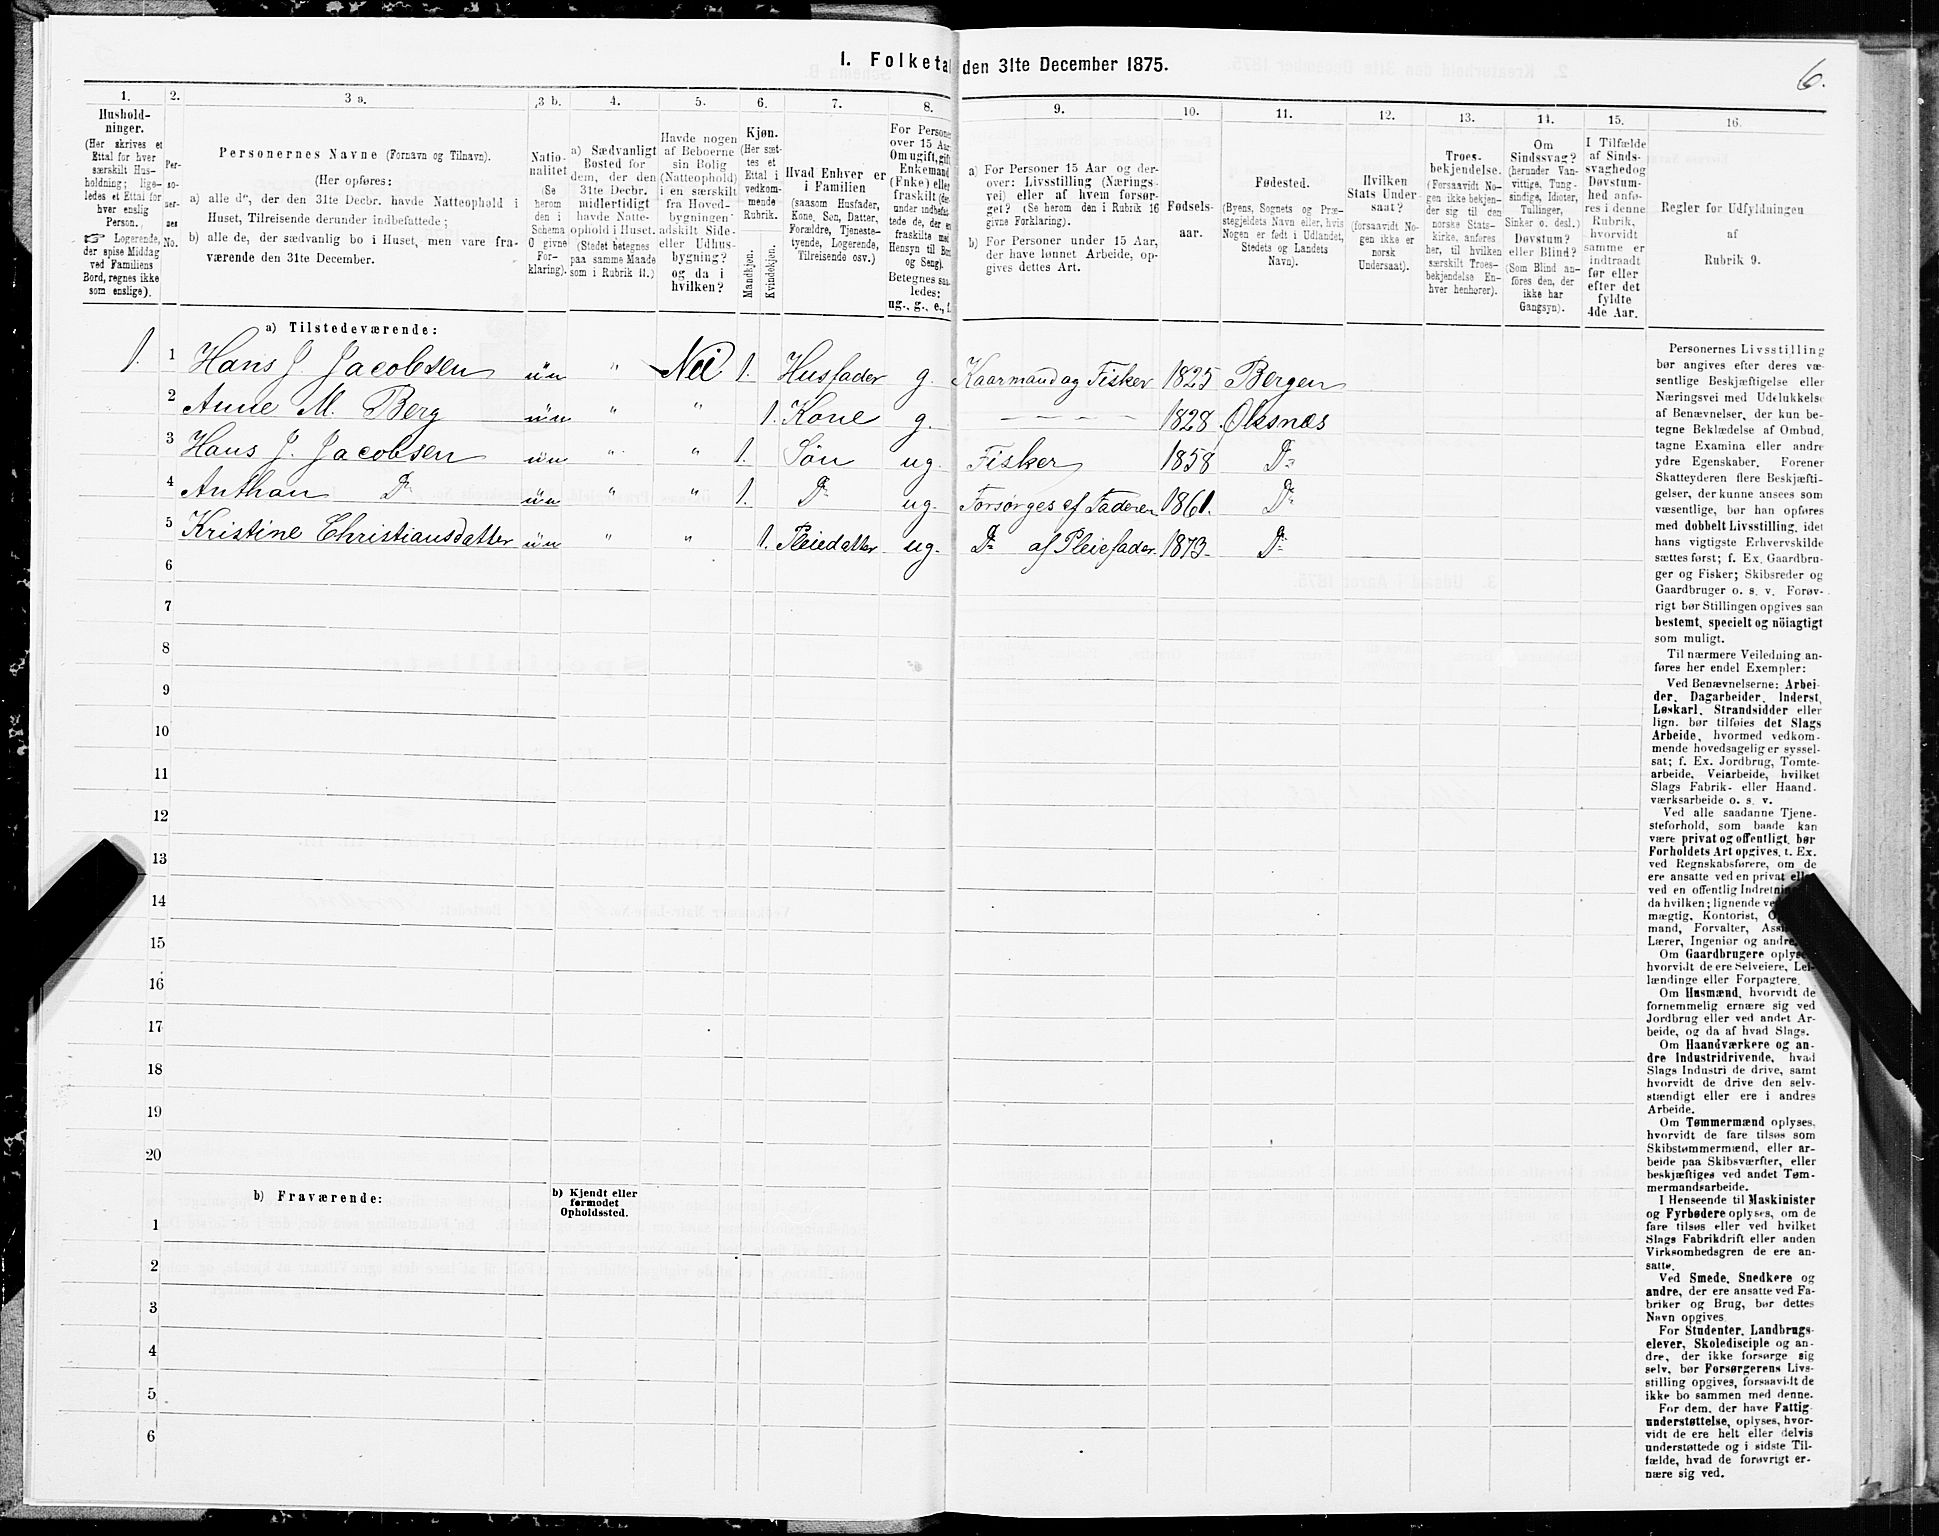 I. Folketal den 31te December 1875.
6.
1. 2. 3 a. 3 b. 4. 5. 6. 7. 8. 9. 10. 11. 12. 13. 14. 15. 16.
Hushold-
ninger.
(Her skrives et
Ettal for hver
særskilt Hus-
holdning; lige-
ledes et Ettal for
hver enslig
Person.
☞ Logerende,
der spise Middag
ved Familiens
Bord, regnes ikke
som enslige).
Per-
so-
ner-
nes
No.
Personernes Navne (Fornavn og Tilnavn).
(Her opføres:
a) alle de, der den 31te Decbr. havde Natteophold i
Huset, Tilreisende derunder indbefattede;
b) alle de, der sædvanlig bo i Huset, men vare fra-
værende den 31te December.
Natio-
nalitet
(Se
herom
den i
Schema
O givne
For-
klaring).
a) Sædvanligt
Bosted for
dem, der den
31te Decbr.
midlertidigt
havde Natte-
ophold i Huset.
(Stedet betegnes
paa samme Maade
som i Rubrik 11.)
Havde nogen
af Beboerne
sin Bolig
(Natteophold)
i en særskilt
fra Hoved-
bygningen
adskilt Side-
eller Udhus-
bygning?
og da i
hvilken?
Kjøn.
(Her sæt-
tes et
Ettal i
vedkom-
mende
Rubrik.
Mandkjøn.
Kvindekjøn.
Hvad Enhver er
i Familien
(saasom Husfader,
Kone, Søn, Datter,
Forældre, Tjeneste-
tyende, Logerende,
Tilreisende osv.)
For Personer
over 15 Aar
Om ugift, gift,
Enkemand
(Enke) eller
fraskilt (der-
under indbefat-
tede de, der ere
fraskilte med
Hensyn til Bord
og Seng).
Betegnes saa-
ledes:
ug., g., e., f.
a) For Personer 15 Aar og der-
over: Livsstilling (Nærings-
vei) eller af hvem forsør-
get? (Se herom den i Rubrik 16
givne Forklaring).
b) For Personer under 15 Aar,
der have lønnet Arbeide, op-
gives dettes Art.
Fødsels-
aar.
Fødested.
(Byens, Sognets og Præ-
stegjeldets Navn eller, hvis
Nogen er født i Udlandet,
Stedets og Landets
Navn).
Hvilken
Stats Under-
saat?
(forsaavidt No-
gen ikke er
norsk
Undersaat).
Troes-
bekjendelse.
(Forsaavidt No-
gen ikke bekjen-
der sig til den
norske Stats-
kirke, anføres
her, til hvilken
særskilt Troes-
bekjendelse En-
hver henhører).
Om
Sindssvag?
(herunder Van-
vittige, Tung-
sindige, Idioter,
Tullinger,
Sinker o. desl.)
Døvstum?
eller Blind?
(Som Blind an-
føres den, der
ikke har
Gangsyn).
I Tilfælde
af Sinds-
svaghed og
Døvstum-
hed anfø-
res i denne
Rubrik,
hvorvidt
samme er
indtraadt
før eller
efter det
fyldte
4de Aar.
Regler for Udfyldningen
af
Rubrik 9.
a) Tilstedeværende:
1. 1 Hans J. Jacobsen ün " Nei 1. Husfader g. Kaarmand og Fisker 1825 Bergen
2 Anne M. Berg ün " " 1. Kone g. - - - - 1828. Øksnæs
3 Hans J. Jacobsen ün " " 1. Søn ug. Fisker 1858 Do
4 Anthon Do ün " " 1. Do ug. Forsørges af Faderen 1861. Do
5 Kristine Christiansdatter ün " " 1. Pleiedatter ug. Do af Pleiefader. 1873. Do
6
7
8
9
10
11
12
13
14
15
16
17
18
19
20
b) Fraværende:
b) Kjendt eller
formodet
Opholdssted.
1
2
3
4
5
6
Personernes Livsstilling
bør angives efter deres væ-
sentlige Beskjæftigelse eller
Næringsvei med Udelukkelse
af Benævnelser, der kun be-
tegne Beklædelse af Ombud,
tagne Examina eller andre
ydre Egenskaber. Forener
Skatteyderen flere Beskjæfti-
gelser, der kunne ansees som
væsentlige, bør han opføres
med dobbelt Livsstilling, idet
hans vigtigste Erhvervskilde
sættes først; f. Ex. Gaardbru-
ger og Fisker; Skibsreder og
Gaardbruger o. s. v. Forøv-
rigt bør Stillingen opgives saa
bestemt, specielt og nöiagtigt
som muligt.
Til nærmere Veiledning an-
føres her endel Exempler:
Ved Benævnelserne: Arbei-
der, Dagarbeider, Inderst,
Løskarl, Strandsidder eller
lign. bør tilføies det Slags
Arbeide, hvormed vedkom-
mende hovedsagelig er syssel-
sat; f. Ex. Jordbrug, Tomte-
arbeide, Veiarbeide, hvilket
Slags Fabrik- eller Haand-
værksarbeide o. s. v.
Ved alle saadanne Tjene-
steforhold, som baade kan
være privat og offentligt, bør
Forholdets Art opgives, t. Ex.
ved Regnskabsførere, om de
ere ansatte ved en privat eller
ved en offentlig Indretning
da hvilken; lignende ved
mægtig, Kontorist,
mand, Forvalter,
Lærer, Ingeniør og andre.
Om Gaardbrugere oplyses,
hvorvidt de ere Selveiere, Lei-
lændinge eller Forpagtere.
Om Husmænd, hvorvidt de
fornemmelig ernære sig ved
Jordbrug eller ved andet Ar-
beide, og da af hvad Slags.
Om Haandværkere og an-
dre Industridrivende, hvad
Slags Industri de drive, samt
hvorvidt de drive den selv-
stændigt eller ere i andres
Arbeide.
Om Tømmermænd oplyses,
hvorvidt de fare tilsøs som
Skibstømmermænd, eller ar-
beide paa Skibsværfter, eller
beskjæftiges ved andet Tøm-
mermandsarbeide.
I Henseende til Maskinister
og Fyrbødere oplyses, om de
fare tilsøs eller ved hvilket
Slags Fabrikdrift eller anden
Virksomhedsgren de ere an-
satte.
Ved Smede, Snedkere og
andre, der ere ansatte ved Fa-
briker og Brug, bør dettes
Navn opgives.
For Studenter, Landbrugs-
elever, Skoledisciple og an-
dre, der ikke forsørge sig
selv, bør Forsørgerens Livs-
stilling opgives, forsaavidt de
ikke bo sammen med denne.
For dem, der have Fattig-
understøttelse, oplyses, hvor-
vidt de ere helt eller delvis
understøttede og i sidste Til-
fælde, hvad de forøvrigt er-
nære sig ved.